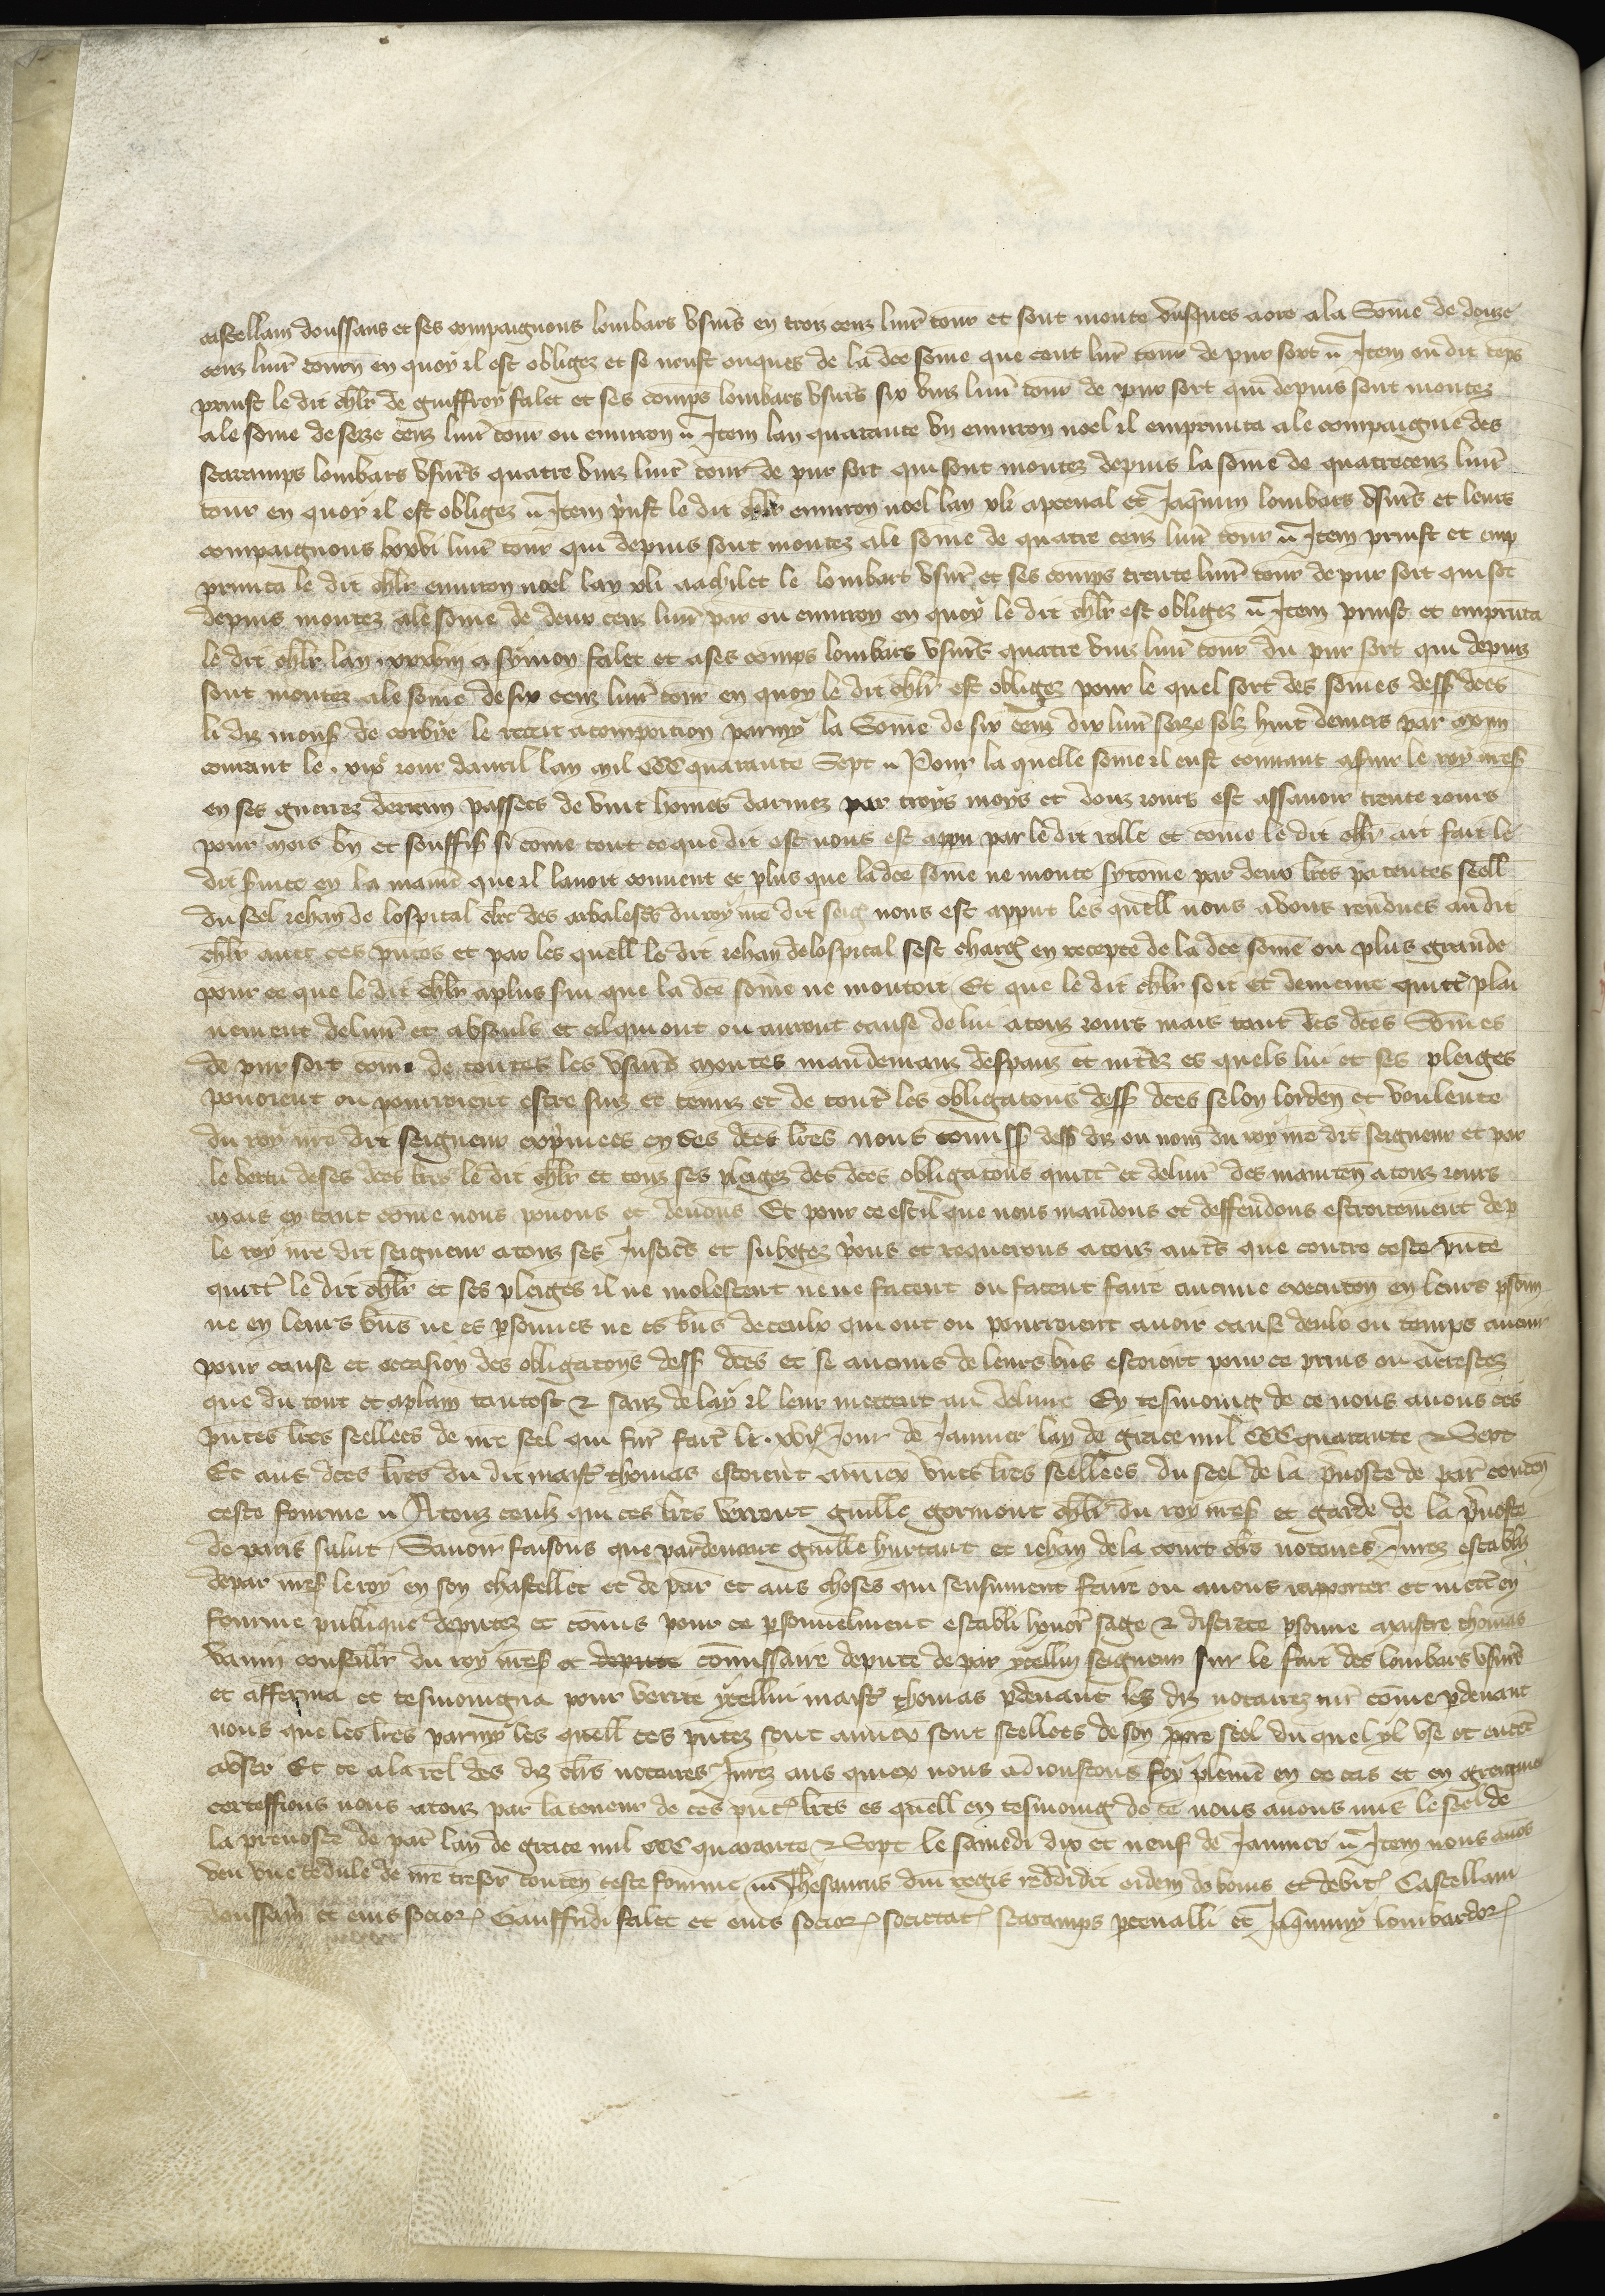 castellain doussans et ses compaignons lombars usurs en trois cenz livr tour et sont monte jusques a ore a la Some de douze
cenz livr tourn en quoy il est obligez et se neust onques de la dce some que cent livr tour de pur sort Item ou dit teps
prinst le dit chlr de guiffroy falet et ses comps lombars usurs six vinz livr tour de pur sort qui depuis sont montez
a le some de seze cenz livr tour ou environ Item lan quarante un environ noel il emprunta a le compaignie des
scaramps lombars usurs quatre vinz livr tour de pur sort qui sont montez depuis la some de quatrecenz livr
tour en quoy il est obligez Item prinst le dit chlr environ noel lan xli a pceval et Jaqmin lombars usurs et leurs
compaignons lxxvi livr tour qui depuis sont montez a le some de quatre cenz livr tour Item prinst et emp
prunta le dit chlr environ noel lan xli a achilet le lombart usur et ses comps trente livr tour de pur sort qui sot
depuis montez a le some de deux cenz livr par ou environ en quoy le dit chlr est obligez Item prinst et emprunta
le dit chlr lan xxxviii a symon falet et a ses comps lombars usurs quatre vinz livr tour du pur sort qui depuis
sont montez a le some de six cenz livr tour en quoy le dit chlr est obligez pour le quel sort des somes dess dces
li diz mons de corbye le recut a composicion parmy la Some de six cenz dix livr seze solz huit deniers par monn
courant le xixe jour davril lan mil CCC quarante Sept Pour la quelle some il eust convant a servir le roy nres
en ses guerrez derrein passees de vint homes darmez par troys moys et douz jours est assavoir trente jours
pour mois bn et souffis si come tout ce que dit est nous est appu par le dit rolle et come le dit chlr ait fait le
dit service en la manir que il lavoit convent et plus que la dce some ne monte sycome par deux lres patentes seell
du seel jehan de lospital clerc des arbalests du roy nre dit seig nous est apput les quell nous avons rendues au dit
chlr avec ces pntes et par les quell le dit jehan de lospital sest charg en recepte de la dce some ou plus grande
pour ce que le dit chlr a plus svi que la dce some ne montoit Et que le dit chlr soit et demeure quitt plai
nement delivr et absouls et cil qui ont ou auront cause de lui a touz jours mais tant des dces Somes
de pur sort come de toutes les usurs montes mandemanz despanz et intrez es quels lui et ses pleiges
pouoient ou pourroient estre suiz et tenuz et de tout les obligatons dess dces selon lorden et voulente
du roy nre dit seigneur exprimees en ces dces lres nous comiss dess diz ou nom du roy nre dit seigneur et par
le vertu de ses dces lres le dit chlr et touz ses pleigez des dces obligatons quitt et delivr des mainten a touz jours
mais en tant come nous pouons et devons Et pour ce est il que nous mandons et deffendons estroitement dep
le roy nre dit seigneur a touz ses Justicrs et subgez prions et requerons a touz auts que contre ceste pnte
quitt le dit chlr et ses pleiges il ne molestent ne ne facent ou facent faire aucune executon en leurs psonn
ne en leurs bns ne es psonnes ne es bns de ceulx qui ont ou pourroient avoir cause deulx ou temps avenir
pour cause et occasion des obligatons dess dces et se aucuns de leurs bns estoient pour ce prins ou arrestez
que du tout et aplain tantost & sanz delay il leur mettent au delivre En tesmoing de ce nous avons ces
pntes lres seellees de nre seel qui fur fait le xvie Jour de Janvier lan de grace mil CCC quarante & Sept
Et aus dces lres du dit maist thomas estoient annex unes lres seellees du seel de la prevoste de par conten
ceste fourme A touz ceuls qui ces lres verront guille gormont chlr du roy nres et garde de la prevoste
de paris salut Savoir faisons que pardevant guille hurtaut et jehan de la court clrs notaires Jurez establiz
de par nres le roy en son chastellet et de par et aus choses qui sensuivent faire ou avons raporter et mett en
fourme publique deputez et comis pour ce personnelment establi honor sage & discrete psonne maistre thomas
vanin conseillr du roy nres et depute comissaire depute de par ycellui seigneur sur le fait des lombars usurs
et afferma et tesmoingna pour verite ycellui maist thomas pdevant les diz notairez nr come pdevant
nous que les lres parmy les quell ces pntez sont annex sont seellees de son ppre seel du quel yl use et entet
a user Et ce a la rel des diz clrs notaires Jurez aus quiex nous adioustons foy pleine en ce cas et en greigneur
certeffions nous a touz par la teneur de ces pnt lres es quell en tesmoing de ce nous avons mis le seel de
la prevoste de par lan de grace mil CCC quarante & Sept le samedi dix et neuf de Janvier Item nous avos
veu une cedule de nre tresor conten ceste fourme Thesaurus dni regis reddidit eidem de bonis et debit Castellani
doussain et eius socior Gauffridi falet et eius socior societat scaramps pcevalli et Jaqmini lombardor